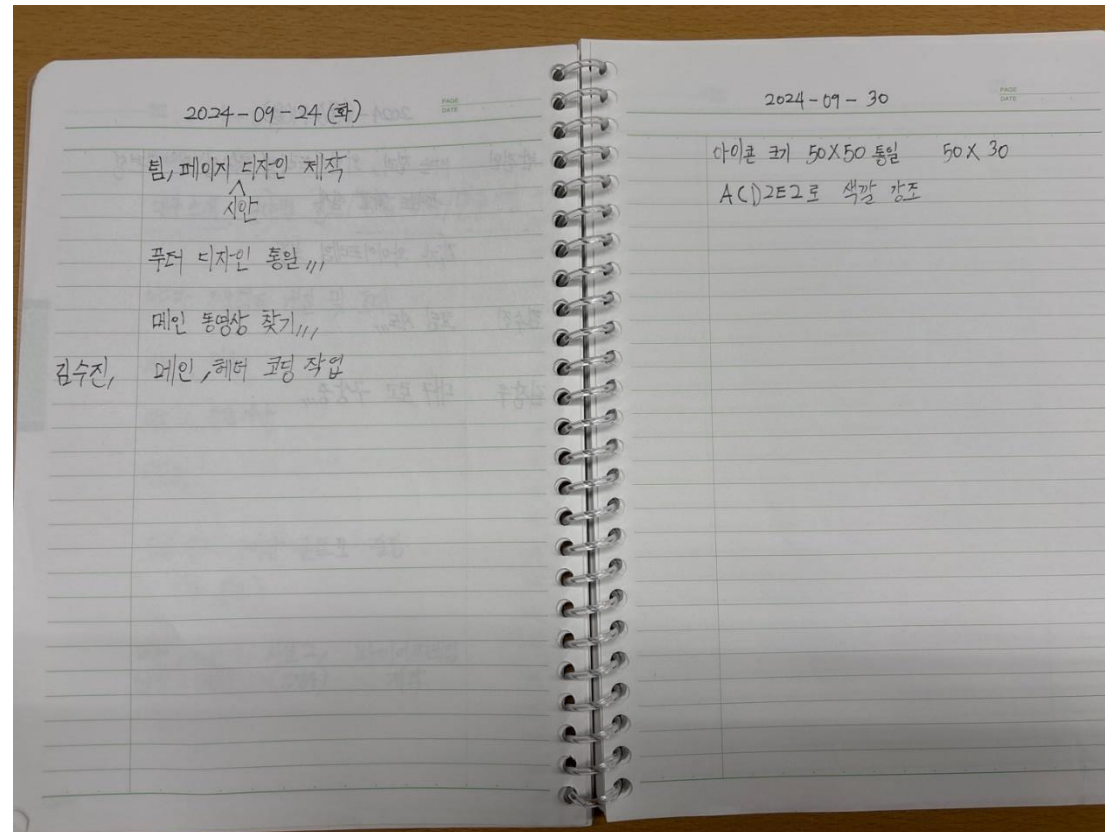 2024-09-24 (화)
PAGE
DATE
팀, 페이지 디자인 제작
시안
푸터 디자인 통일,,,
메인 동영상 찾기,,,
김수진, 메인, 헤더 코딩 작업
2024-09-30
PAGE
DATE
아이콘 크기 50X50 통일 50X30
로 색깔 강조